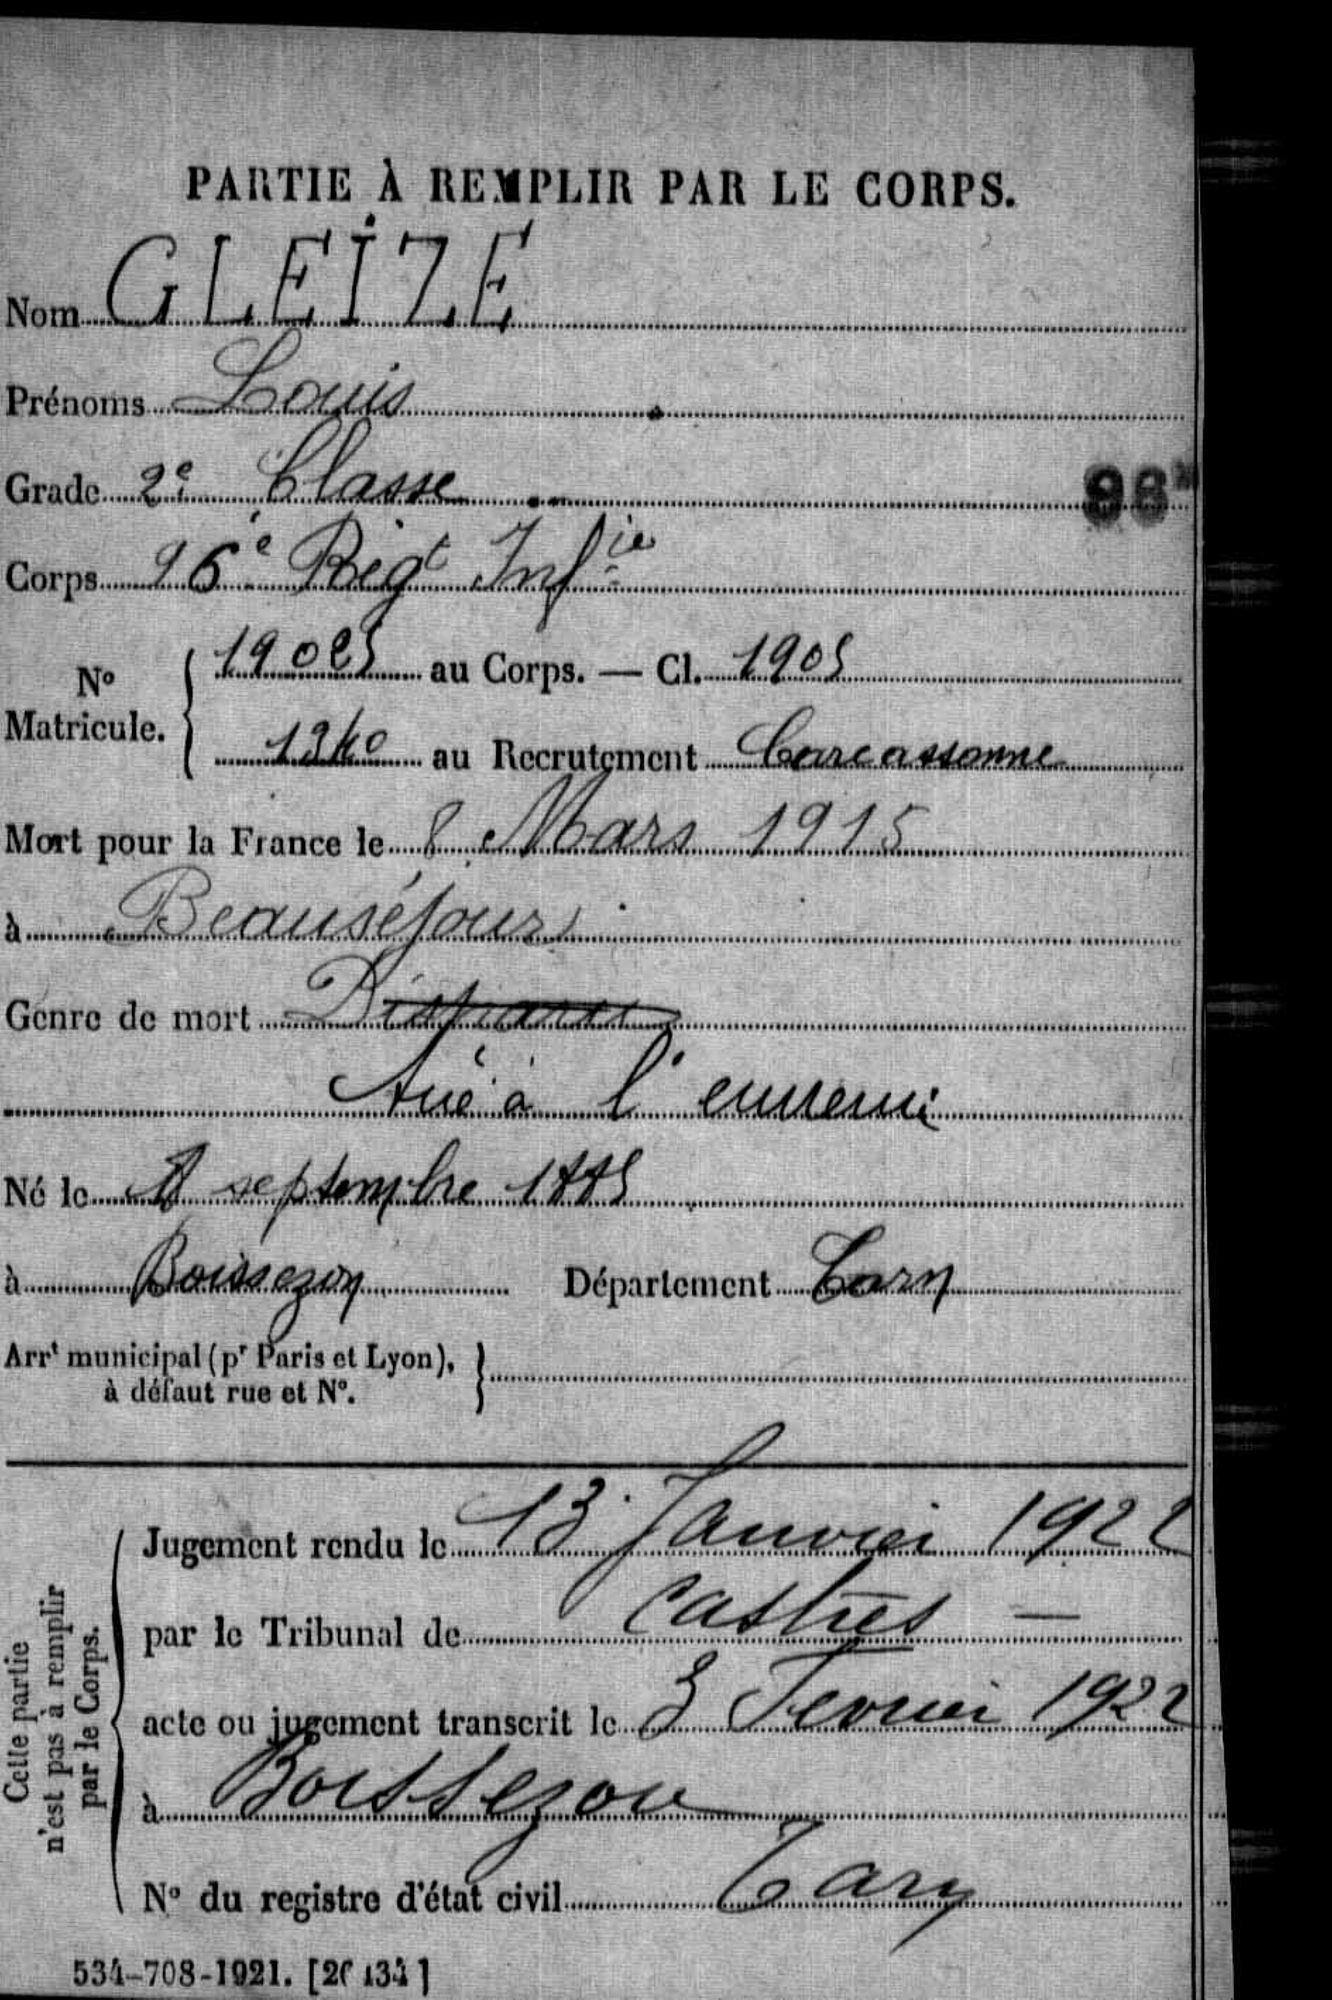 PARTIE À REMPLIR PAR LE CORPS.
Nom GLEIZE
Prénoms Louis
Grade 2e Classe
98
Corps 96e Régt Infie
No Matricule. 19025 au Corps. — Cl. 1905
1340 au Recrutement Carcassonne
Mort pour la France le 8 Mars 1915
à Beauséjour
Genre de mort Disparu
tué à l'ennemi
Né le septembre 1885
à Boissezon Département Tarn
Arrt municipal (pr Paris et Lyon),
à défaut rue et No.
Cette partie
n'est pas à remplir
par le Corps.
Jugement rendu le 13 Janvier 1922
par le Tribunal de Castres —
acte ou jugement transcrit le 3 Fevrier 1922
à Boissezon
No du registre d'état civil Tarn
534-708-1921.